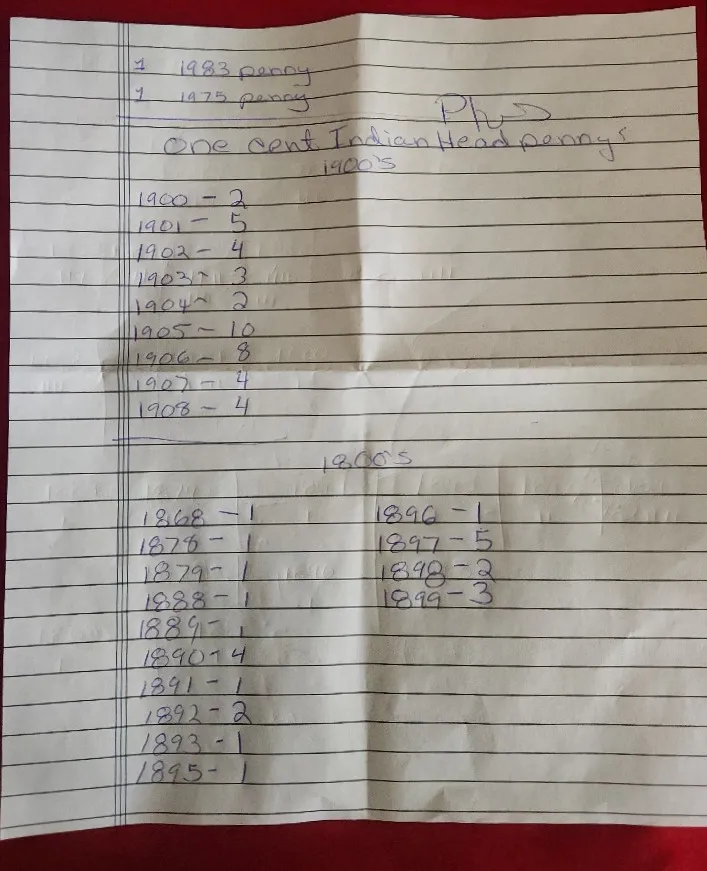 1 1983 penny
1 1975 penny
Plus
One cent Indian Head penny's
1900's
1900 - 2
1901 - 5
1902 - 4
1903 - 3
1904 - 2
1905 - 10
1906 - 8
1907 - 4
1908 - 4
1800's
1868 - 1
1878 - 1
1879 - 1
1888 - 1
1889 - 1
1890 - 4
1891 - 1
1892 - 2
1893 - 1
1895 - 1
1896 - 1
1897 - 5
1898 - 2
1899 - 3